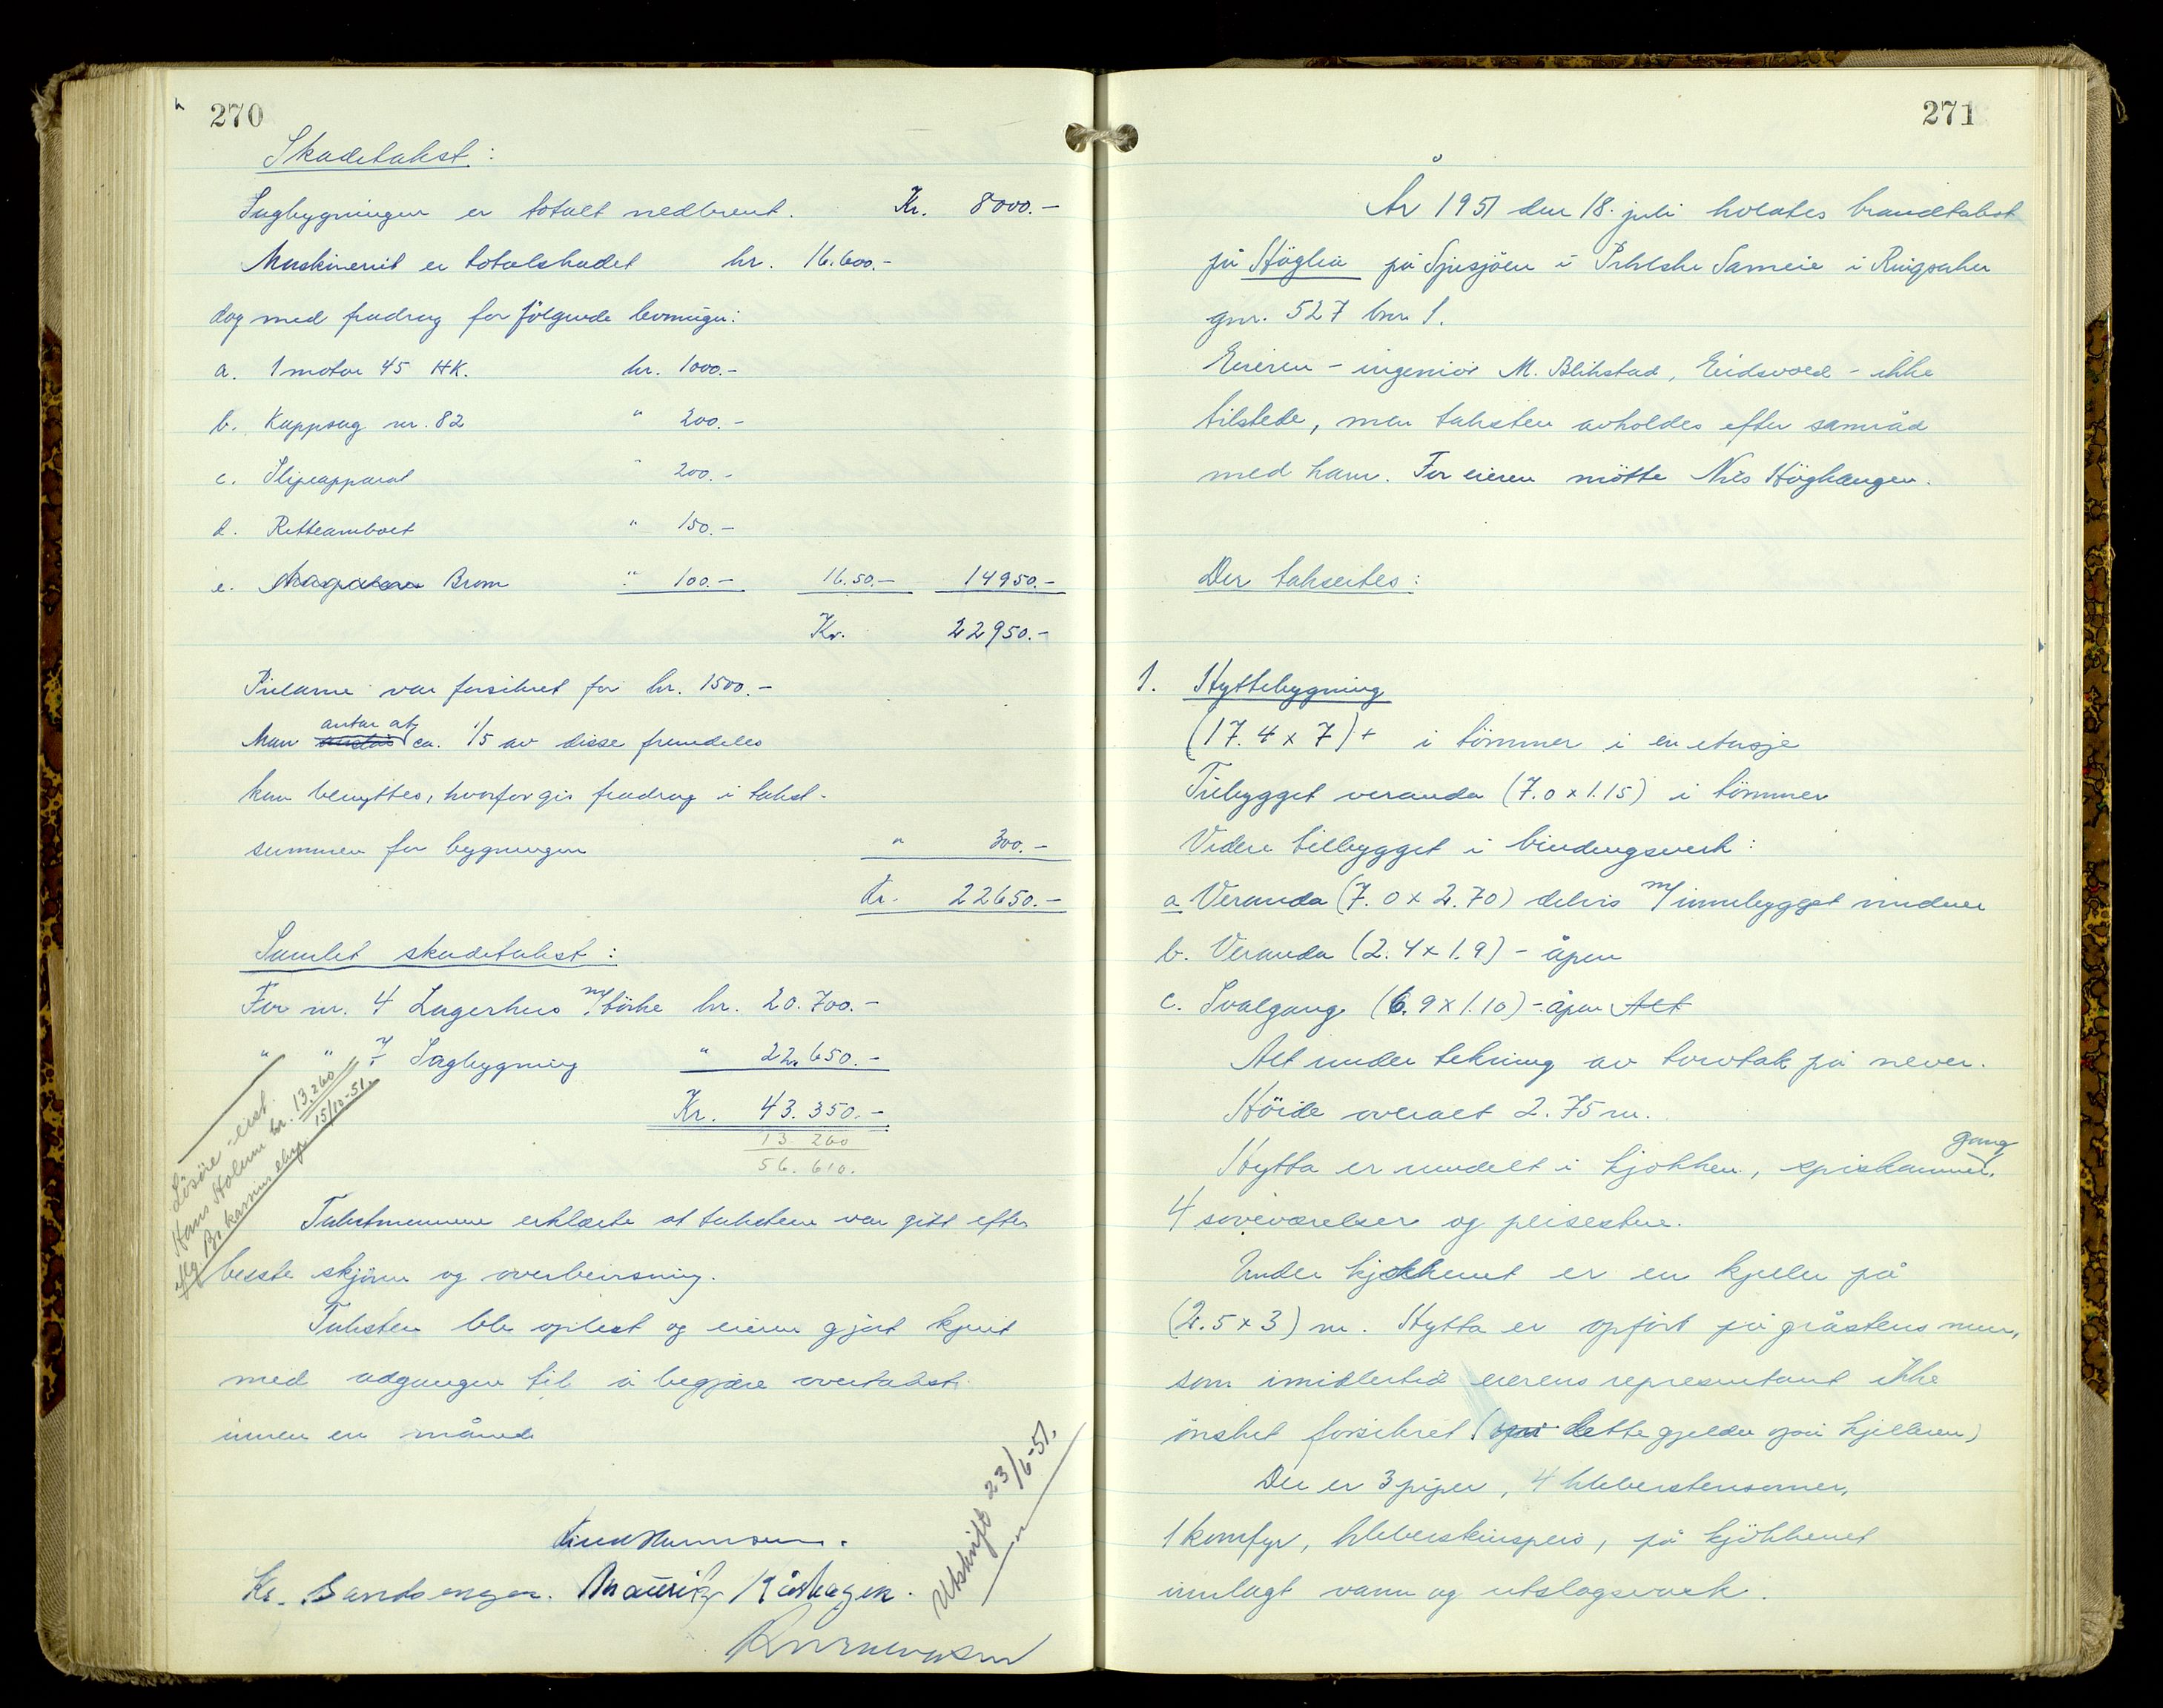 270
Skadetakst:
Sagbygningen er totalt nedbrent. Kr. 8000.-
Maskineriet er totalskadet kr. 16.600.-
dog med fradrag for følgende levninger:
a. 1 motor 45 HK. kr. 1000.-
b. Kappsag nr. 82 " 200.-
c. Slipeapparat " 200.-
d. Retteambolt " 150.-
e. Brom " 100.- 16.50.- 14950.-
Kr. 22950.-
Pilarene var forsikret for kr. 1500.-
Man antar at ca. 1/5 av disse fremdeles
kan benyttes, hvorfor gis fradrag i takst-
summen for bygningen " 300.-
Kr. 22650.-
Samlet skadetakst:
For nr. 4 Lagerhus m/tørke kr. 20.700.-
" " 7 Sagbygning " 22.650.-
Kr. 43.350.-
13 260
56. 610.
Løsøre - erst.
Hans Holum kr. 13.260
iflg. Br.kassens skriv 15/10-51.
Takstmennene erklærte at taksten var gitt efter
beste skjønn og overbevisning.
Taksten ble oplest og eieren gjort kjent
med adgangen til å begjære overtakst
innen en måned
Kr. Sandsengen. Maurits Kårhagen.
Utskrift 23/6-51.
271
År 1951 den 18. juli holdtes brandtakst
på Høglia på Sjusjøen i Pihlske Sameie i Ringsaker
gnr. 527 bnr 1.
Eieren - ingeniør M. Blikstad, Eidsvold - ikke
tilstede, men taksten avholdes efter samråd
med ham. For eieren møtte Nils Høghaugen.
Der takseres:
1. Hyttebygning
(17.4 x 7) + i tømmer i en etasje
Tilbygget veranda (7.0 x 1.15) i tømmer
Videre tilbygget i bindingsverk:
a Veranda (7.0 x 2.70) delvis m/innebygget vinduer
b. Veranda (2.4 x 1.9) - åpen
c. Svalgang (6.9 x 1.10) - åpen Alt
Alt under tekning av torvtak på never.
Høide overalt 2.75 m.
Hytta er inndelt i kjøkken, spiskammer, gang
4 soveværelser og peisestue.
Under kjøkkenet er en kjeller på
(2.5 x 3) m. Hytta er opført på gråstens mur,
som imidlertid eierens representant ikke
ønsket forsikret (dette gjelder også kjelleren)
Der er 3 piper, 4 kleberstensovner,
1 komfyr, kleberstenspeis, på kjøkkenet
innlagt vann og utslagsvask.